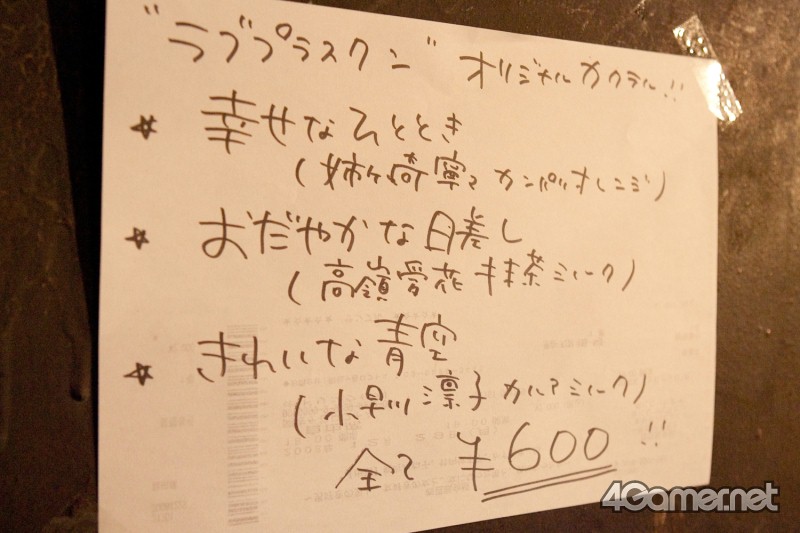 "ラブプラスクン" オリジナルカクテル!!
★ 幸せなひととき
(姉ヶ崎寧々 カンパリオレンジ)
★ おだやかな日差し
(高嶺愛花 抹茶ミルク)
★ きれいな青空
(小早川凛子 カルアミルク)
全て ¥600 !!
4Gamer.net